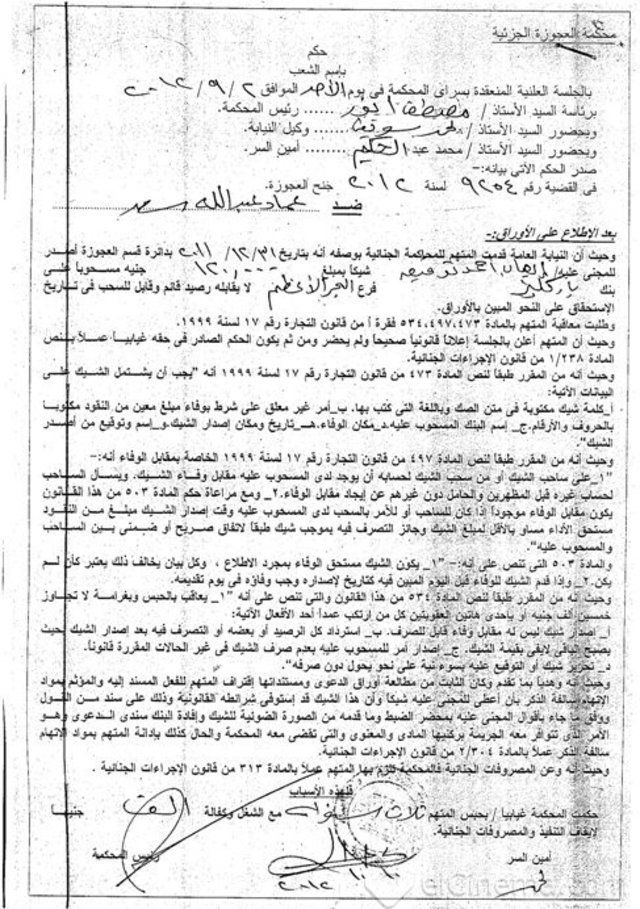 محكمة العجوزة الجزئية
حكم
بإسم الشعب
بالجلسة العلنية المنعقدة بسراى المحكمة فى يوم الأحد الموافق ٢ / ٩ / ٢٠١٢
برئاسة السيد الأستاذ / مصطفى أنور ...... رئيس المحكمة.
وبحضور السيد الأستاذ / ........ وكيل النيابة.
وبحضور السيد الأستاذ / محمد عبد الحكيم ........ أمين السر.
صدر الحكم الآتى بيانه:-
فى القضية رقم ٩٢٥٤ لسنة ٢٠١٢ جنح العجوزة.
ضد عماد عبدالله
بعد الإطلاع على الأوراق:-
وحيث أن النيابة العامة قدمت المتهم للمحاكمة الجنائية بوصفه أنه بتاريخ ٣١/ ١٢/ ٢٠١١ بدائرة قسم العجوزة أصدر
للمجنى عليه/ إيهاب احمد توفيق شيكاً بمبلغ ١٢٠,٠٠٠ جنيه مسحوباً على
بنك باركليز فرع لا يقابله رصيد قائم وقابل للسحب فى تاريخ
الاستحقاق على النحو المبين بالأوراق.
وطلبت معاقبة المتهم بالمادة ٥٣٤،٤٩٧،٤٧٣ فقرة أ من قانون التجارة رقم ١٧ لسنة ١٩٩٩.
وحيث أن المتهم أعلن بالجلسة إعلاناً قانونياً صحيحاً ولم يحضر ومن ثم يكون الحكم الصادر فى حقه غيابياً عملاً بنص
المادة ١/٢٣٨ من قانون الإجراءات الجنائية.
وحيث أنه من المقرر طبقاً لنص المادة ٤٧٣ من قانون التجارة رقم ١٧ لسنة ١٩٩٩ أنه "يجب أن يشتمل الشيك على
البيانات الآتية:
أ_كلمة شيك مكتوبة فى متن الصك وباللغة التى كتب بها. ب_أمر غير معلق على شرط بوفاء مبلغ معين من النقود مكتوباً
بالحروف والأرقام.ج_ إسم البنك المسحوب عليه.د_مكان الوفاء.هـ_تاريخ ومكان إصدار الشيك.و_إسم وتوقيع من أصدر
الشيك".
وحيث أنه من المقرر طبقاً لنص المادة ٤٩٧ من قانون التجارة رقم ١٧ لسنة ١٩٩٩ الخاصة بمقابل الوفاء أنه:-
"١_على ساحب الشيك أو من سحب الشيك لحسابه أن يوجد لدى المسحوب عليه مقابل وفاء الشيك. ويسأل الساحب
لحساب غيره قبل المظهرين والحامل دون غيرهم عن إيجاد مقابل الوفاء.٢_ ومع مراعاة حكم المادة ٥٠٣ من هذا القانون
يكون مقابل الوفاء موجوداً إذا كان للساحب أو للآمر بالسحب لدى المسحوب عليه وقت إصدار الشيك مبلغ من النقود
مستحق الأداء مساو بالأقل لمبلغ الشيك وجائز التصرف فيه بموجب شيك طبقاً لاتفاق صريح أو ضمنى بين الساحب
والمسحوب عليه".
والمادة ٥٠٣ التى تنص على أنه:- "١_ يكون الشيك مستحق الوفاء بمجرد الاطلاع ، وكل بيان يخالف ذلك يعتبر كأن لم
يكن.٢_ وإذا قدم الشيك للوفاء قبل اليوم المبين فيه كتاريخ لإصداره وجب وفاؤه فى يوم تقديمه.
وحيث أنه من المقرر طبقاً لنص المادة ٥٣٤ من هذا القانون والتى تنص على أنه "١_ يعاقب بالحبس وبغرامة لا تجاوز
خمسين ألف جنيه أو بإحدى هاتين العقوبتين كل من ارتكب عمداً أحد الأفعال الآتية:
أ_ إصدار شيك ليس له مقابل وفاء قابل للصرف. ب_ استرداد كل الرصيد أو بعضه أو التصرف فيه بعد إصدار الشيك بحيث
يصبح الباقى لايفى بقيمة الشيك. ج_ إصدار أمر للمسحوب عليه بعدم صرف الشيك فى غير الحالات المقررة قانوناً.
د_ تحرير شيك أو التوقيع عليه بسوء نية على نحو يحول دون صرفه".
وحيث أنه وهدياً بما تقدم وكان الثابت من مطالعة أوراق الدعوى ومستنداتها إقتراف المتهم للفعل المسند إليه والمؤثم بمواد
الإتهام سالفة الذكر بأن أعطى للمجنى عليه شيكاً وأن هذا الشيك قد إستوفى شرائطه القانونية وذلك على سند من القول
ووفق ما جاء بأقوال المجنى عليه بمحضر الضبط وما قدمه من الصورة الضوئية للشيك وإفادة البنك سندى الدعوى وهو
الأمر الذى تتوافر معه الجريمة بركنيها المادى والمعنوى والتى تقضى معه المحكمة والحال كذلك بإدانة المتهم بمواد الاتهام
سالفة الذكر عملاً بالمادة ٢/٣٠٤ من قانون الإجراءات الجنائية.
وحيث أنه وعن المصروفات الجنائية فالمحكمة تلزم بها المتهم عملاً بالمادة ٣١٣ من قانون الإجراءات الجنائية .
فلهذه الأسباب
حكمت المحكمة غيابيا / بحبس المتهم ثلاث سنوات مع الشغل وكفالة الف جنيها
لايقاف التنفيذ والمصروفات الجنائية.
أمين السر رئيس المحكمة
elCinema.com